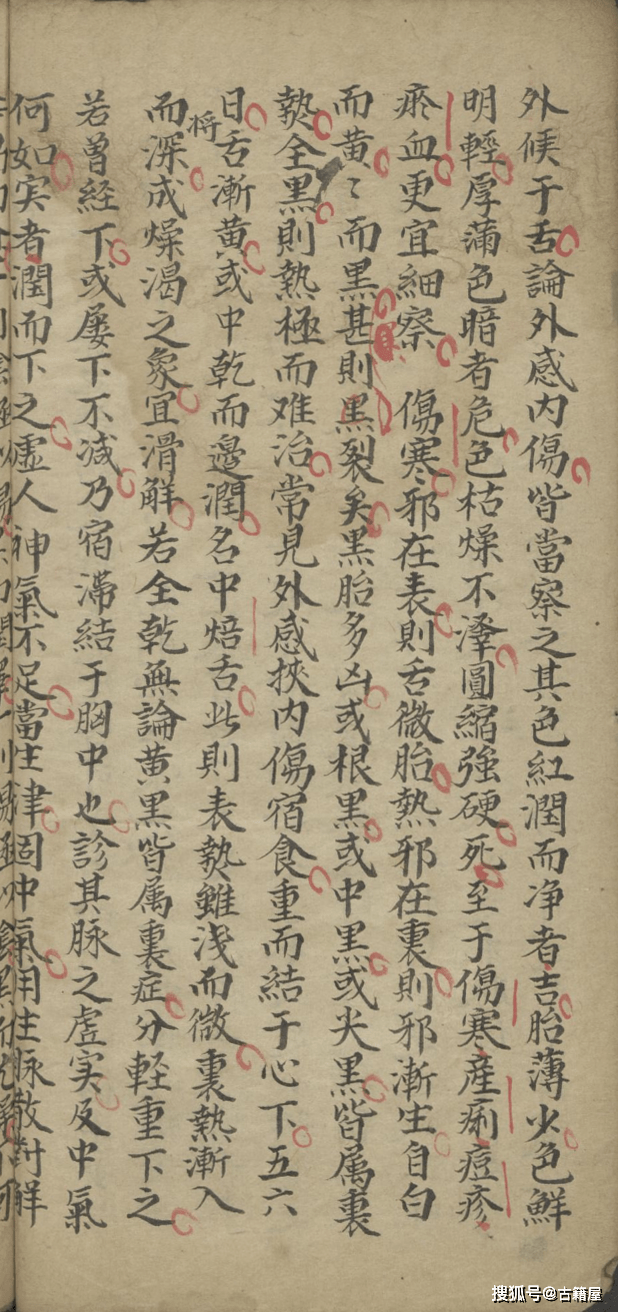 外候于舌論外感内傷皆當察之其色紅潤而净者吉胎薄火色鮮
明輕厚蒲色暗者危色枯燥不澤圓縮強硬死至于傷寒産痢痘疹
瘀血更宜細察 傷寒邪在表則舌微胎熱邪在裏則邪漸生自白
而黄〻而黑甚則黑裂矣黑胎多凶或根黑或中黑或尖黑皆属裏
热全黑則熱極而难治常見外感挾内傷宿食重而結于心下五六
日舌将漸黄或中乾而邉潤名中焙舌此則表热雖浅而微裏熱漸入
而深成燥渴之象宜滑觧若全乾無論黄黑皆属裏症分軽重下之
若曾経下或屡下不减乃宿滞結于胸中也診其脉之虚实及中氣
何如实者潤而下之虚人神氣不足當生津固中氣用生脉散對觧
搜狐号@古籍屋